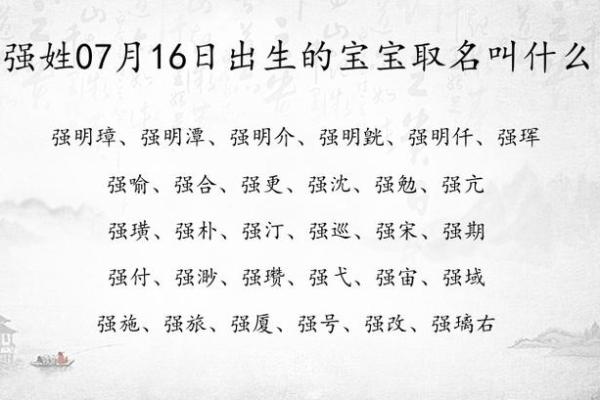 强姓07月16日出生的宝宝取名叫什么
强明璋、强明潭、强明介、强明毿、强明仟、强珲
强喻、强合、强更、强沈、强勉、强亢
强璜、强朴、强汀、强巡、强宋、强期
强付、强渺、强瓒、强弋、强宙、强域
强施、强旅、强厦、强号、强改、强璃右